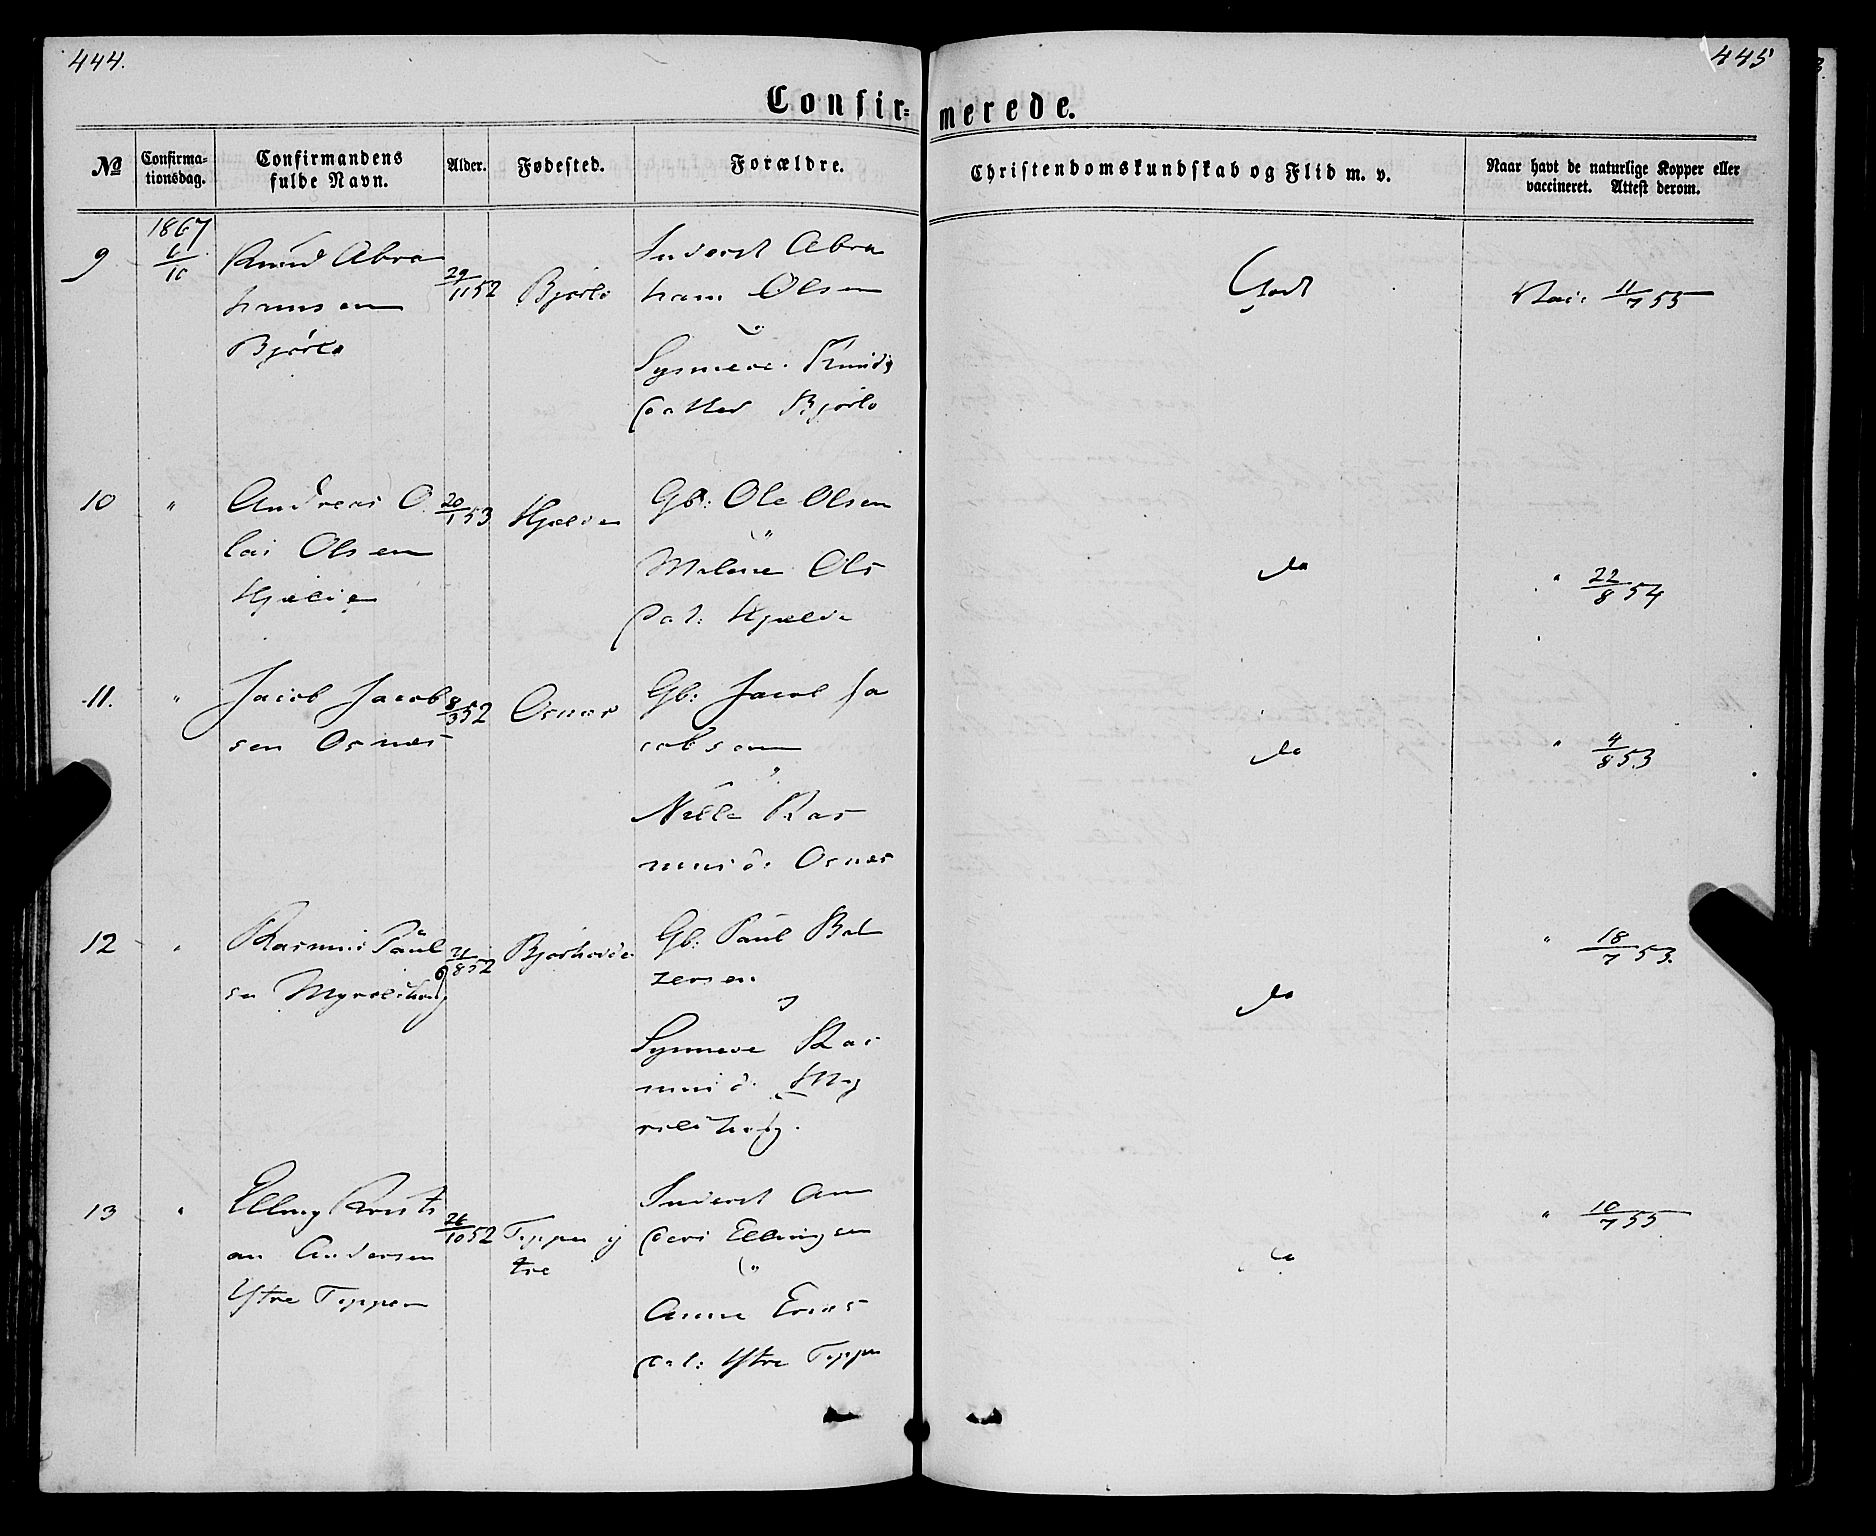 444.
445
Confir=
merede.
No
Confirma-
tionsdag.
Confirmandens
fulde Navn.
Alder.
Fødested.
Forældre.
Christendomskundskab og Flid m. v.
Naar havt de naturlige Kopper eller
vaccineret. Attest derom.
9
1867
6/10
Knud Abra
hamsen
Bjørlo
29/11 52
Bjørlo
Inderst Abra
ham Olsen
Synneve Knuds
datter Bjørlo
Godt
Vac: 11/7 55
10
"
Andreas O
lai Olsen
Hjelle
20/1 53
Gb: Ole Olsen
"
Malene Ols
dat:
do
" 22/8 54
11.
"
Jacob Jacob
sen Osnes
8/3 52
Osnes
Gb: Jacob Ja
cobsen
"
Ras
musd: Osnes
do
" 4/8 53
12
"
Rasmus Paul
sen
21/8 52
Gb: Paul Bal
zersen
Synneve Ras
musd.
do
" 18/7 53.
13
"
Elling Kristi
an Andersen
Ytre Toppen
26/10 52
Toppen y
tre
Inderst An
ders Ellingsen
"
Anne
dat: Ytre Toppen
" 10/7 55